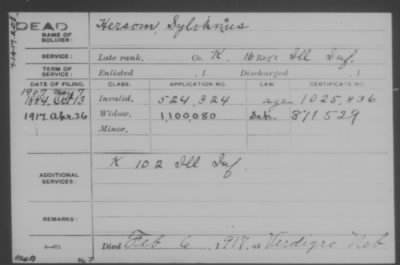 DEAD
NAME OF SOLDIER: Hersom, Sylvanius
SERVICE: Late rank, Co. K, 16 Reg't Ill Inf.
TERM OF SERVICE: Enlisted , 1 Discharged , 1
DATE OF FILING. CLASS. APPLICATION NO. LAW. CERTIFICATE NO.
1907 May 7
1884 Oct 13 Invalid, 524,324 age 1025,836
1917 Apr. 26 Widow, 1,100,080 871529
Minor,
ADDITIONAL SERVICES: K 102 Ill Inf
REMARKS:
Died Feb 6, 1917, at Verdigre Neb